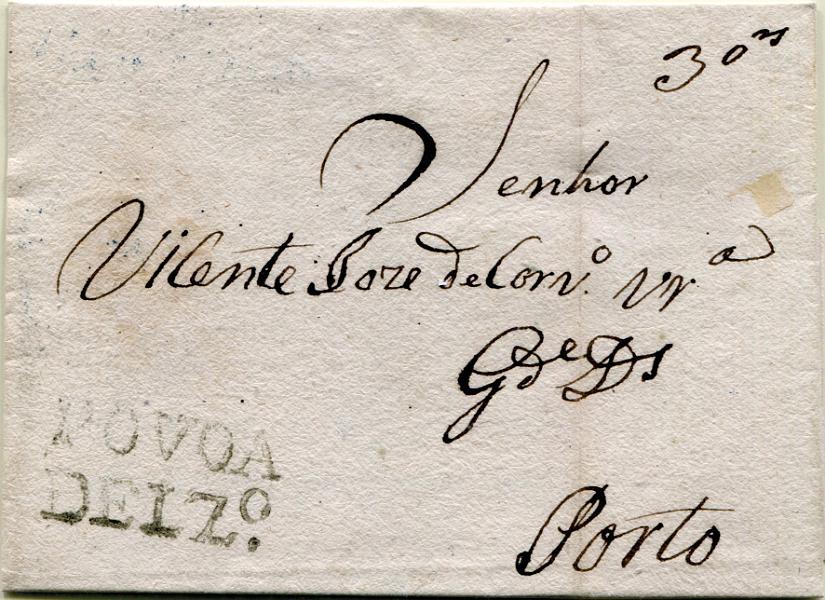 3 oᵐˢ
Senhor
Vicente Joze de Carvº Vrª
Gde Ds
Porto
POVOA
DE LZº